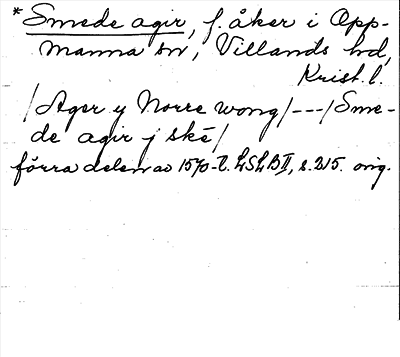 *Smede agir, f. åker i Opp-
manna sn, Villands hd,
Krist. l.
/Ager y Norre wong/---/Sme-
de agir j ske/
förra delen av 1570-t. LSLB II, s. 215. orig.